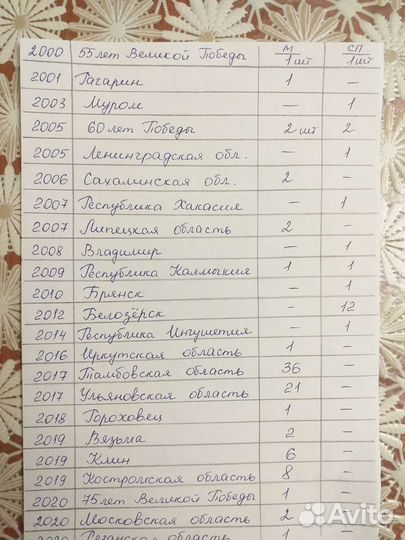 2000 55 лет Великой Победы М 1 шт СП 1 шт
2001 Гагарин 1 —
2003 Муром — 1
2005 60 лет Победы 2 шт 2
2005 Ленинградская обл. — 1
2006 Сахалинская обл. 2 —
2007 Республика Хакасия — 1
2007 Липецкая область 2 —
2008 Владимир — 1
2009 Республика Калмыкия 1 1
2010 Брянск — 1
2012 Белозёрск 12
2014 Республика Ингушетия — 1
2016 Иркутская область 1 —
2017 Тамбовская область 36 —
2017 Ульяновская область 21 —
2018 Гороховец 1 —
2019 Вязьма 2 —
2019 Клин 6 —
2019 Костромская область 8 —
2020 75 лет Великой Победы 1 —
2020 Московская область 2 —
2020 Рязанская область 1
Avito